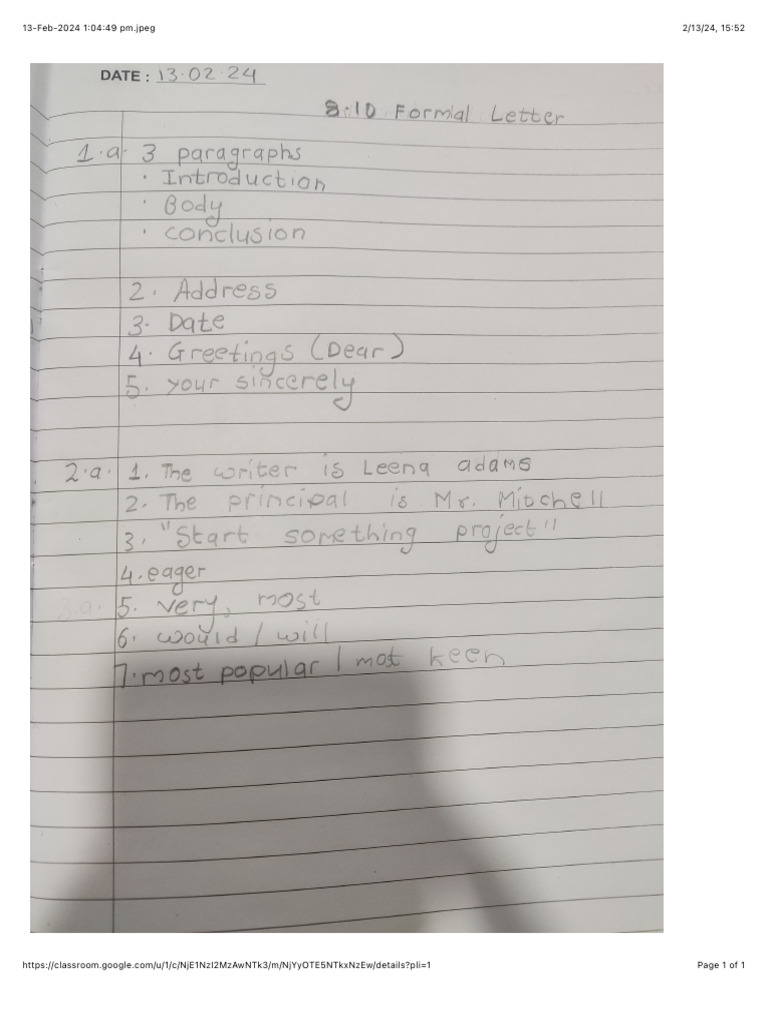 13-Feb-2024 1:04:49 pm.jpeg 2/13/24, 15:52
DATE : 13.02.24
8.10 Formal Letter
1.a. 3 paragraphs
• Introduction
• Body
• conclusion
2. Address
3. Date
4. Greetings (Dear)
5. your sincerely
2.a. 1. The writer is Leena adams
2. The principal is Mr. Mitchell
3. "Start something project"
4. eager
3.a. 5. very, most
6. would / will
7. most popular / most keen
https://classroom.google.com/u/1/c/NjE1NzI2MzAwNTk3/m/NjYyOTE5NTkxNzEw/details?pli=1 Page 1 of 1